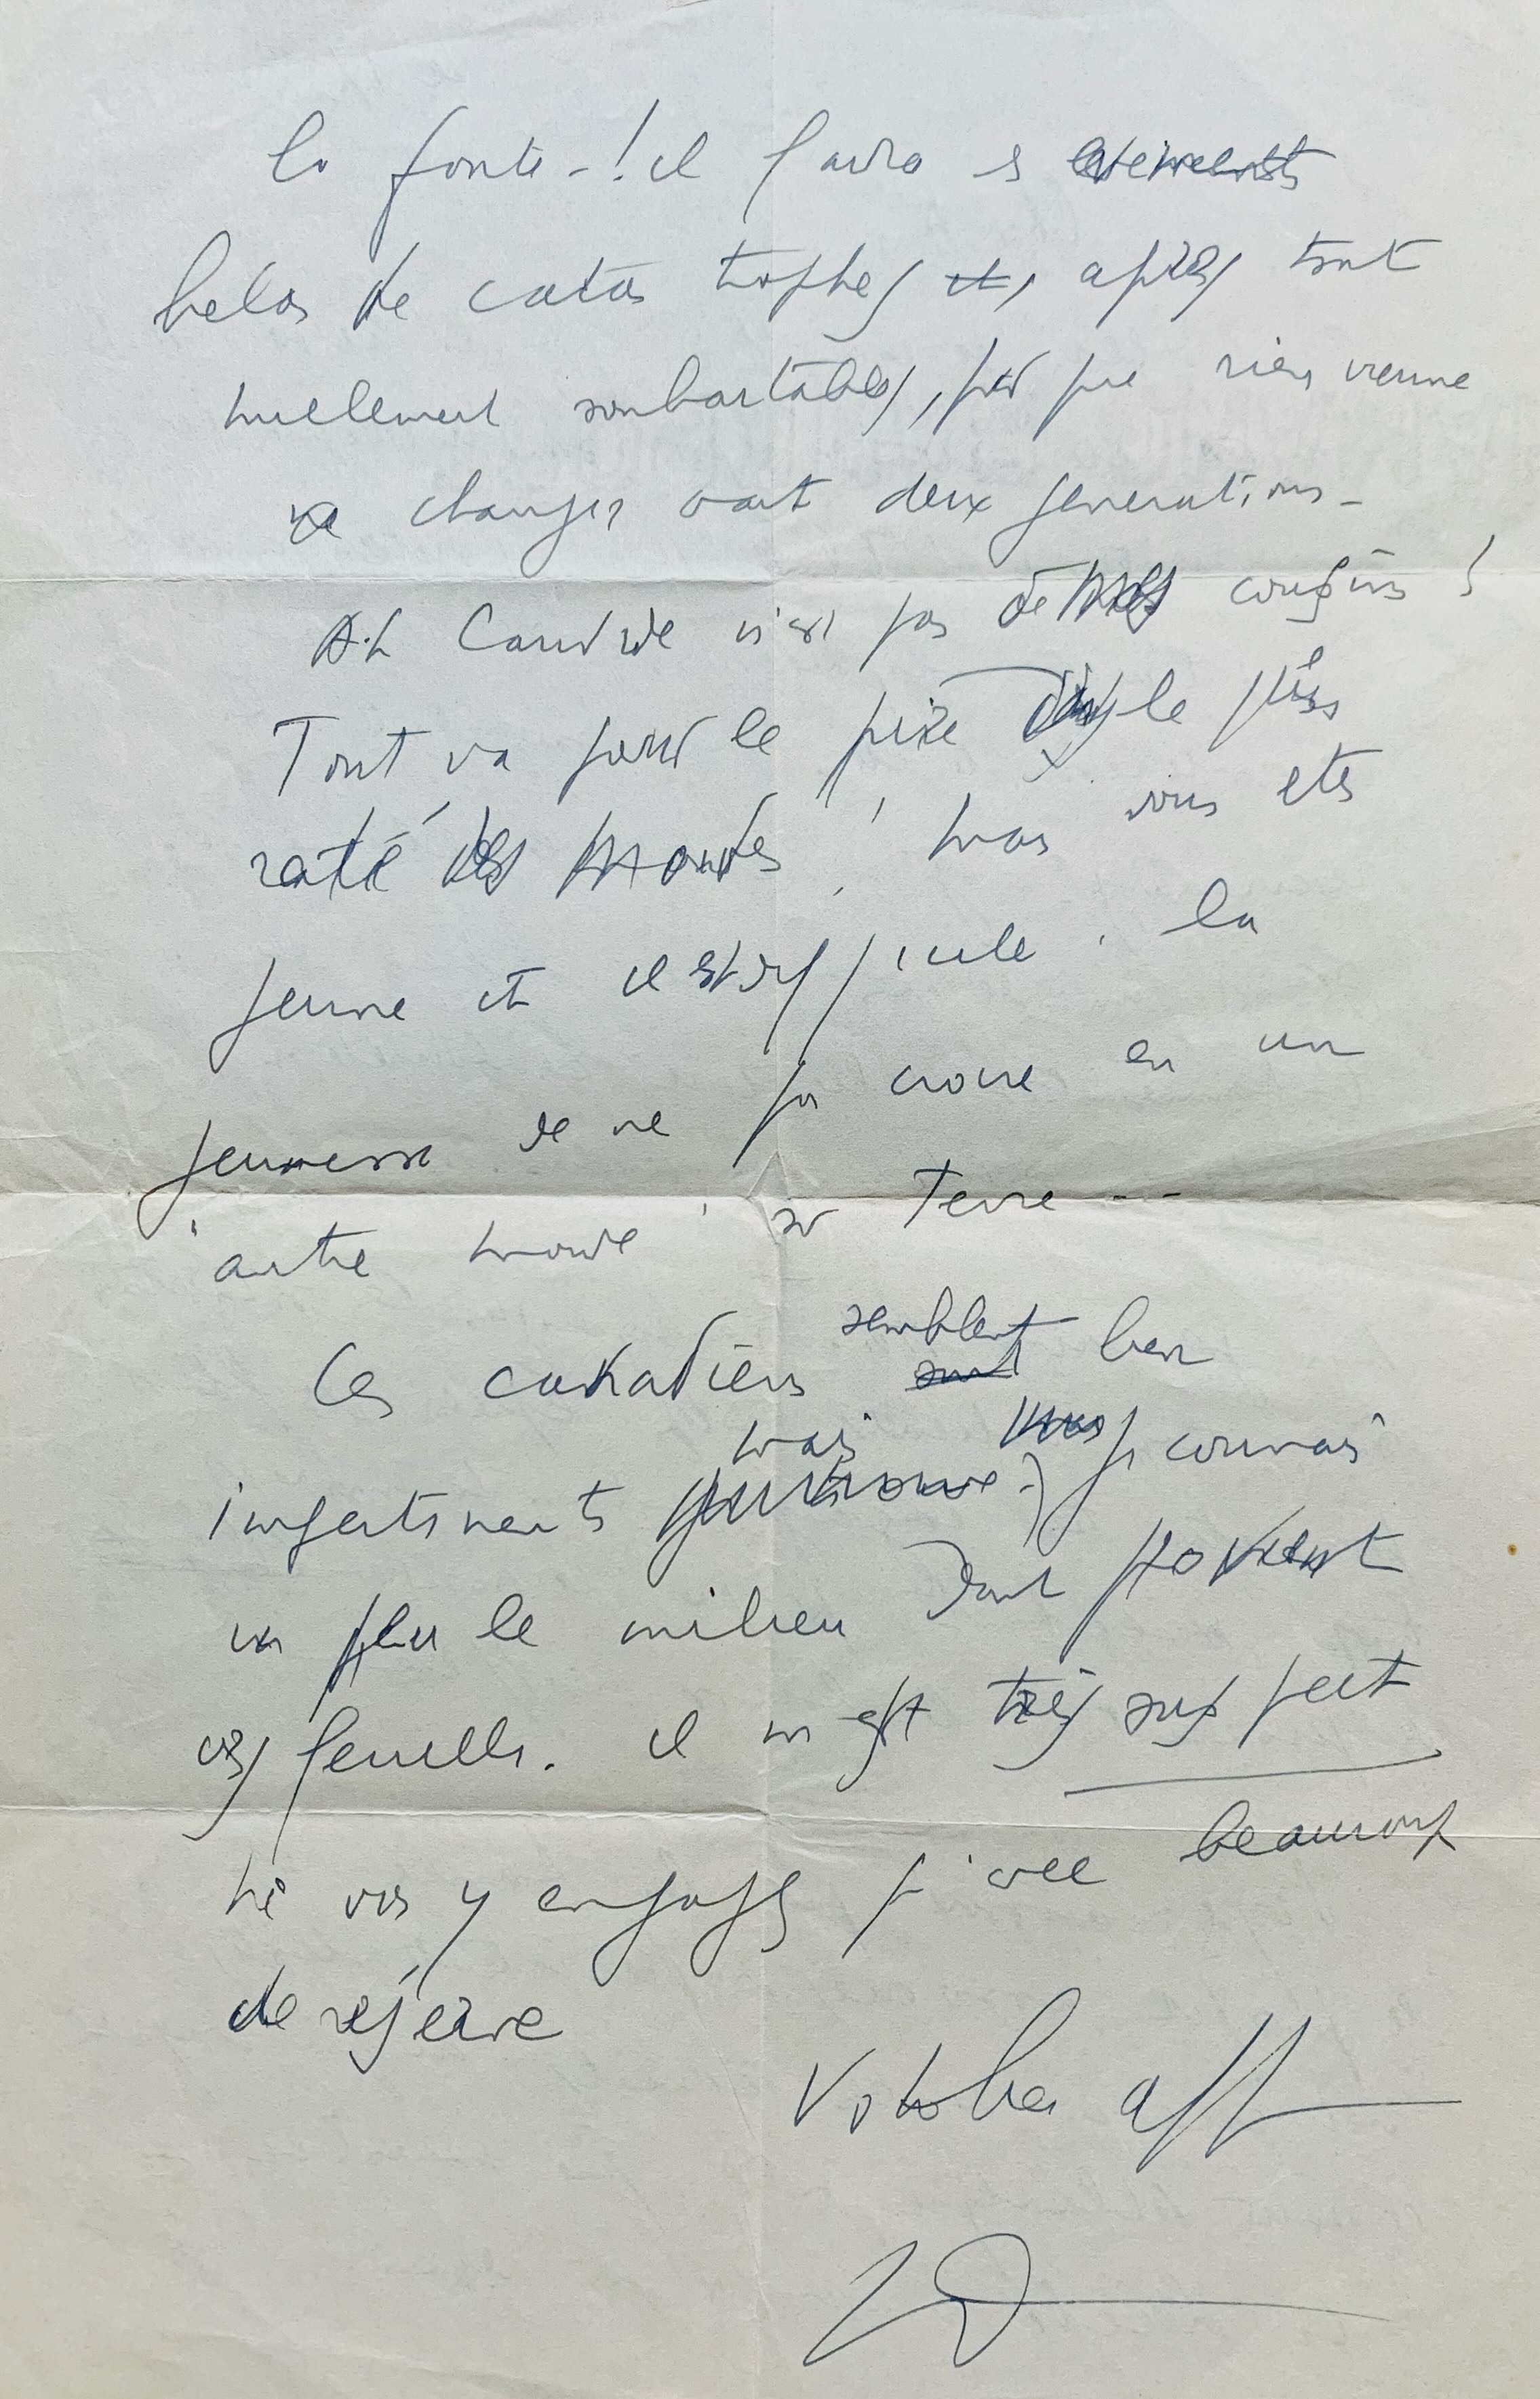 la fonte - ! il faudra
helas de catastrophes et, après tout
nullement souhaitables, pour que rien vienne
changer avant deux generations -
Ah Candide n'est pas de mes cousins !
Tout va pour le pire dans le plus
raté des mondes ! mais vous etes
jeune et il est difficile à la
jeunesse de ne pas croire en un
"autre monde" sur Terre ---
Ces semblent bien
impertinents mais je connais
un peu le milieu dont provient
ces feuilles. il m'est très suspect
ne vous y engagez qu'avec beaucoup
de réserve
Votre aff